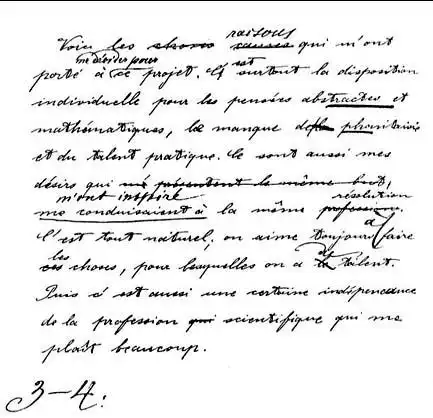 raisons
Voici les choses causes qui m'ont
me décider pour est
porté à ce projet. C' surtout la disposition
individuelle pour les pensées abstractes et
mathématiques, le manque de phantaisie
et du talent pratique. Ce sont aussi mes
désirs qui me présentent le même but,
m'ont inspiré résolution
me conduisaient à la même profession.
à
C'est tout naturel, on aime toujours faire
les du
ces choses, pour lesquelles on a le talent.
Puis c'est aussi une certaine indépendance
de la profession qui scientifique qui me
plaît beaucoup.
3-4.